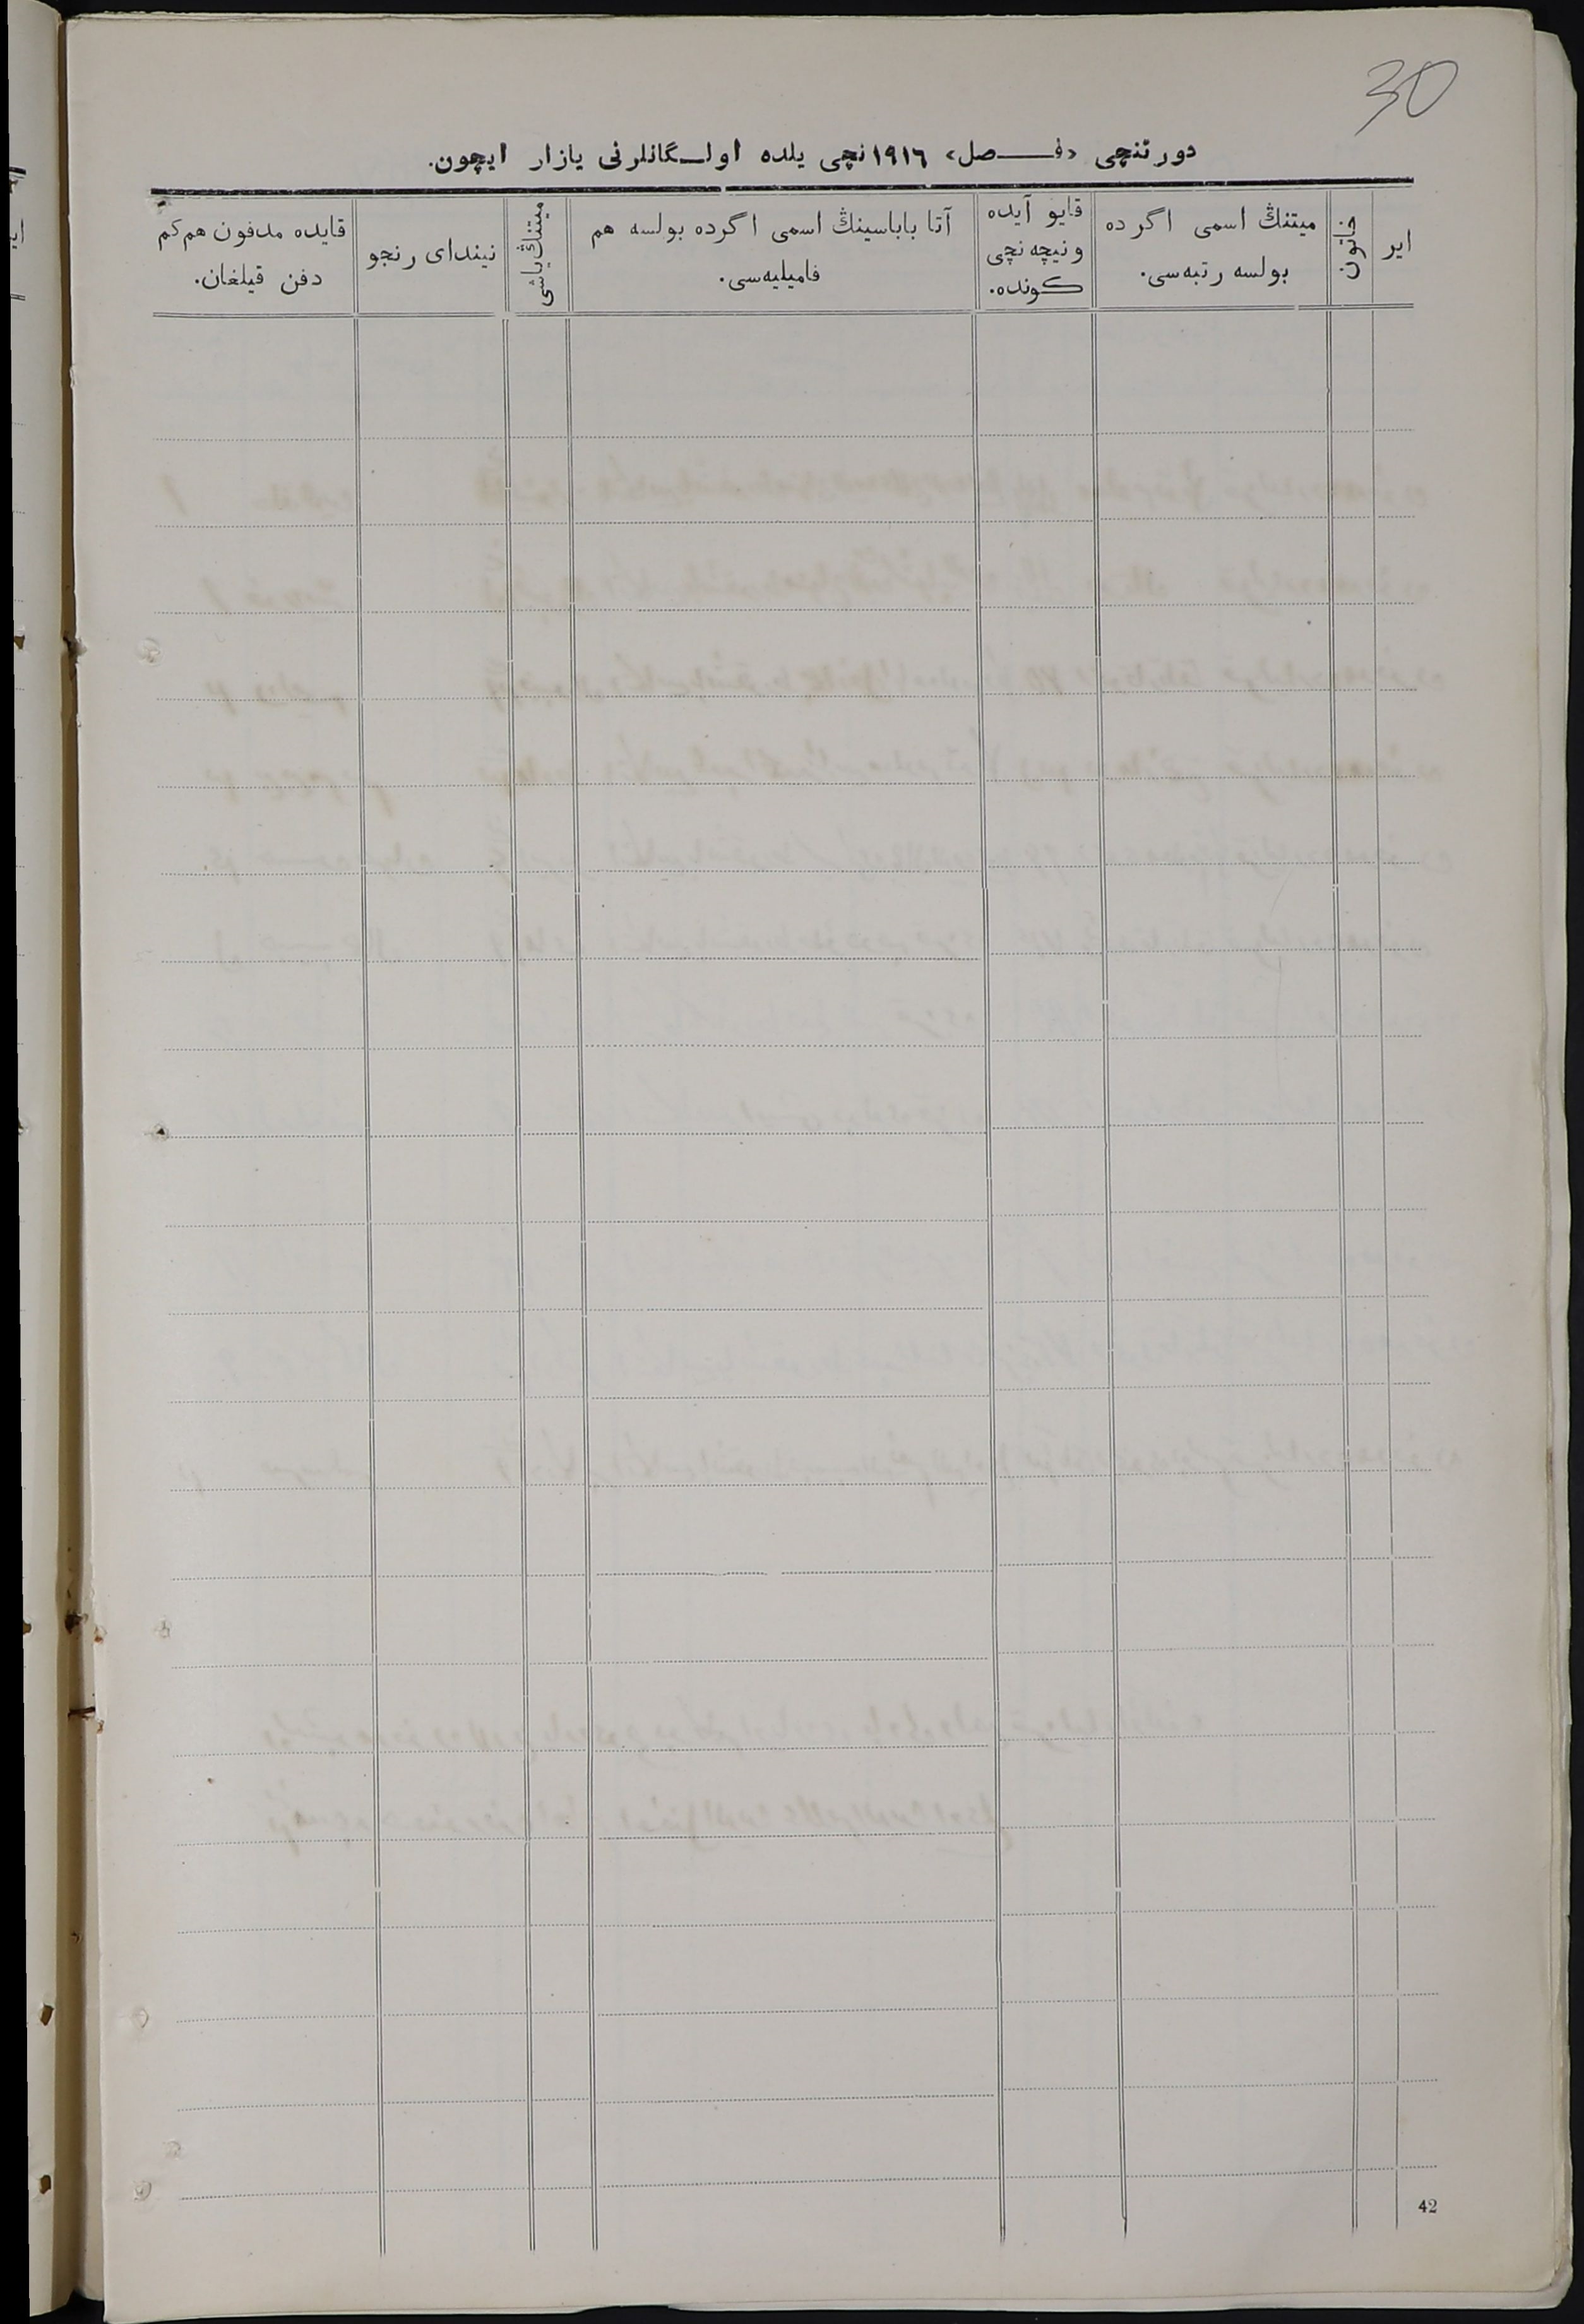 30
دورتنچی «فـــصل» ١٩١٦نچی یلده اولـــگانلرنی یازار ایچون.
ایر
خاتون
میتنڭ اسمی اگرده
بولسه رتبه‌سی.
قایو آیده
ونیچه‌نچی
کونده.
آتا باباسینڭ اسمی اگرده بولسه هم
فامیلیه‌سی.
میتنڭ یاشی
نیندای رنجو
قایده مدفون هم‌کم
دفن قیلغان.
42